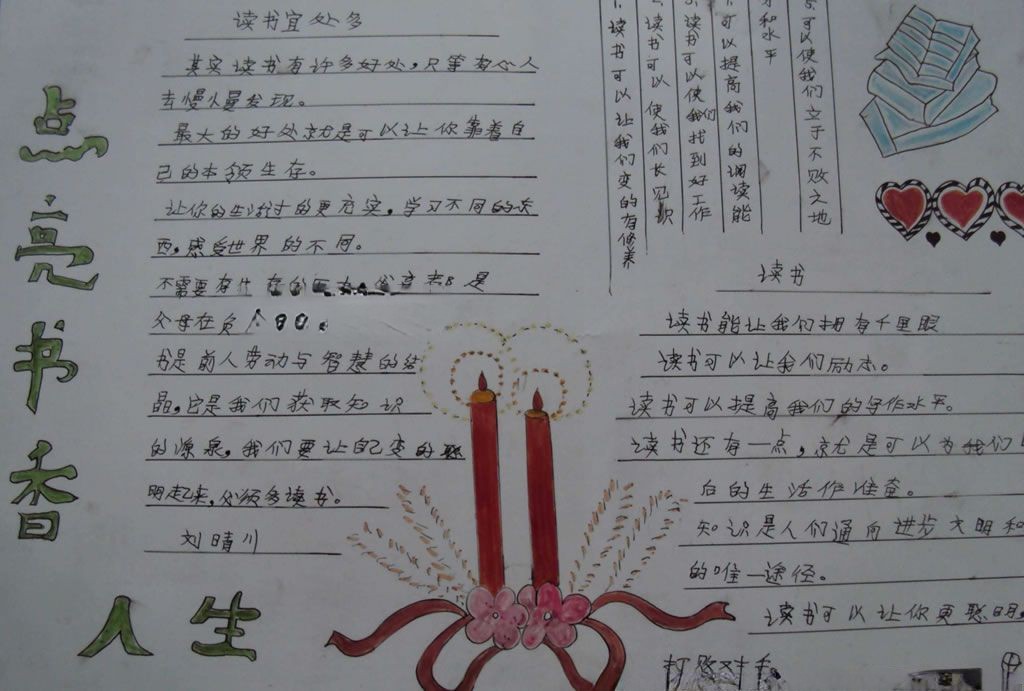 点亮书香
人生
读书宜处多
其实读书有许多好处，只等有心人
去慢慢发现。
最大的好处就是可以让你靠着自
己的本领生存。
让你的生活过的更充实，学习不同的东
西，感受世界的不同。
不需要有什
是
父母在负
书是前人劳动与智慧的结
晶，它是我们获取知识
的源泉，我们要让自己变的聪
明起来，必须多读书。
刘晴川
读书可以让我们变的有修养
读书可以使我们长见识
读书可以使我们找到好工作
可以提高我们的阅读能
力和水平
可以使我们立于不败之地
读书
读书能让我们拥有千里眼
读书可以让我们励志。
读书可以提高我们的写作水平。
读书还有一点，就是可以为我们
后的生活作准备。
知识是人们通向进步文明和
的唯一途径。
读书可以让你更聪明，
打败对手